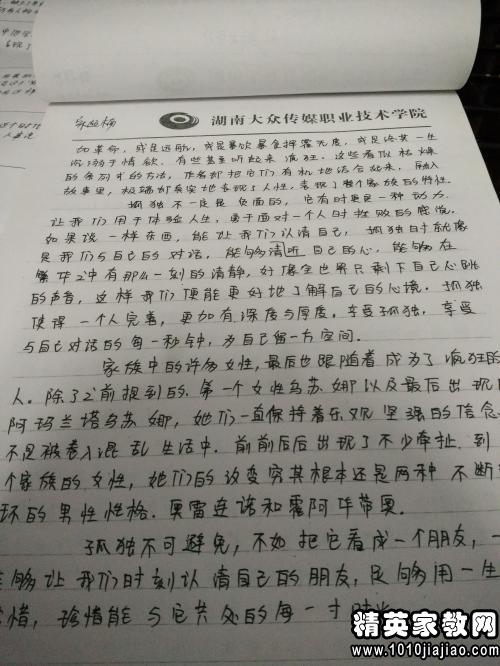 湖南大众传媒职业技术学院
如革命，或是远航，或是暴饮暴食挥霍无度，或是终其一生
沉溺于情欲。有些甚至听起来疯狂。这些看似枯燥
的条列式的方法，作者却把它们有机地结合起来，融入
故事里，极端却真实地表现了人性，表现了整个家族的特性。
孤独不一定是负面的，它有时更是一种动力
让我们用于体验人生，勇于面对一个人时挫败的感觉。
如果说一样东西，能让我们认清自己，孤独时就像
是我们与自己的对话，能够清听自己的心，能够在
繁华之中有那么一刻的清静，好像全世界只剩下自己心跳
的声音，这样我们便能更好地了解自己的心境。孤独
使得一个人完善，更加有深度与厚度，享受孤独，享受
与自己对话的每一秒钟，为自己留一方空间。
家族中的许多女性，最后也跟随着成为了疯狂的
人。除了之前提到的，第一个女性乌苏娜以及最后出现
阿玛兰塔乌苏娜，她们一直保持着乐观坚强的信念
不是被卷入混乱生活中，前前后后出现了不少牵扯到
个家族的女性，她们的改变穷其根本还是两种不断
环的男性性格，奥雷连诺和霍阿华蒂奥。
孤独不可避免，不如把它看成一个朋友，一
能够让我们时刻认清自己的朋友，足够用一生
惜，珍惜能与它共处的每一寸时光
精英家教网
www.1010jiajiao.com